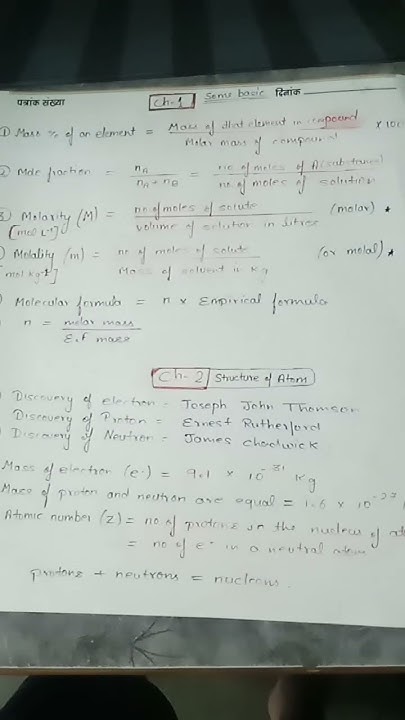 पत्रांक संख्या Ch-1 Some basic दिनांक
① Mass % of an element = Mass of that element in compound / Molar mass of compound × 100
② Mole fraction = nA / nA + nB = no of moles of A (substance) / no of moles of solution
③ Molarity (M) = no of moles of solute / volume of solution in litres (molar) *
[mol L⁻¹]
) Molality (m) = no of moles of solute / Mass of solvent in Kg (or molal) *
[mol kg⁻¹]
) Molecular formula = n × Empirical formula
n = molar mass / E.F mass
Ch-2 Structure of Atom
Discovery of electron - Joseph John Thomson
Discovery of Proton = Ernest Rutherford
Discovery of Neutron = James Chadwick
Mass of electron (e-) = 9.1 × 10⁻³¹ Kg
Mass of proton and neutron are equal = 1.6 × 10⁻²⁷
Atomic number (Z) = no of protons in the nucleus of
= no of e⁻ in a neutral atom
protons + neutrons = nucleons.